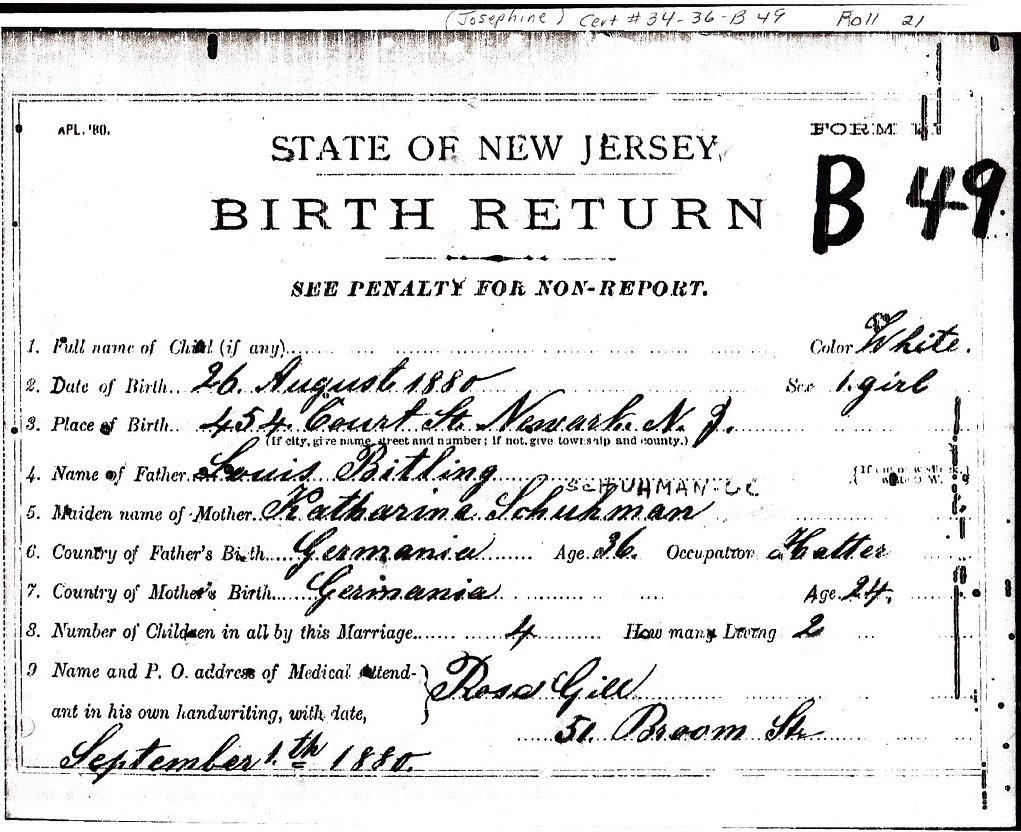 (Josephine) Cert # 34-36-B 49 Roll 21
APL. '80.
FORM
STATE OF NEW JERSEY,
B 49
BIRTH RETURN
SEE PENALTY FOR NON-REPORT.
1. Full name of Child (if any) Color White.
2. Date of Birth 26. August 1880 Sex 1. girl
3. Place of Birth 454 Court St. Newark. N. J.
(If city, give name, street and number; if not, give township and county.)
4. Name of Father Louis Bitling
SCHUHMAN
5. Maiden name of Mother Katharina Schuhman
6. Country of Father's Birth Germania Age 36. Occupation Hatter
7. Country of Mother's Birth Germania Age 24.
8. Number of Children in all by this Marriage 4 How many Living 2
9 Name and P. O. address of Medical Attend-
ant in his own handwriting, with date,
Rosa Gill
51. Broom St.
September 1.th 1880.